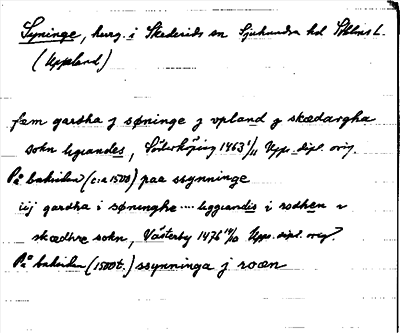 Syninge, herrg. i Skederids sn Sjuhundra hd Sthlms L.
(Uppland)
fæm gardha j søninge j vpland j skædargha
sokn liggiandes, Söderköping 1463 1/11 Upps. dipl. orig.
På baksidan (c:a 1500) paa ssynninge
iiij gardha i søninghe .... liggiandis i rodhen
skædhve sokn, Västerby 1476 /10 Upps. dipl. orig.
På baksidan (1500t.) ssynninga j roæn